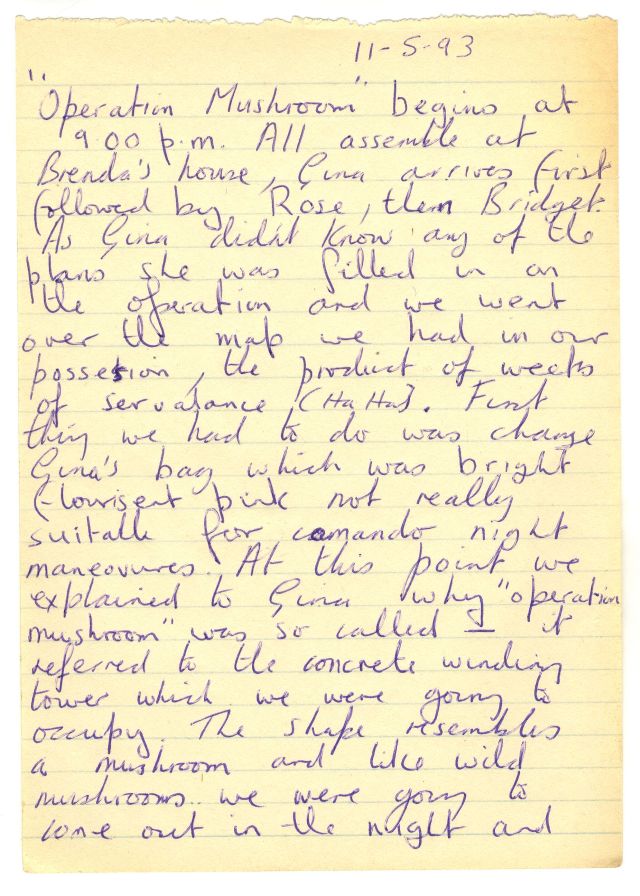 11-5-93
"Operation Mushroom" begins at
9.00 p.m. All assemble at
Brenda's house, Gina arrives first
followed by Rose, then Bridget.
As Gina didn't know any of the
plans she was filled in on
the operation and we went
over the map we had in our
possesion, the product of weeks
of servalance (Ha Ha). First
thing we had to do was change
Gina's bag which was bright
flourisent pink not really
suitable for comando night
maneouvures. At this point we
explained to Gina why "operation
mushroom" was so called — it
referred to the concrete winding
tower which we were going to
occupy. The shape resembles
a mushroom and like wild
mushrooms we were going to
come out in the night and